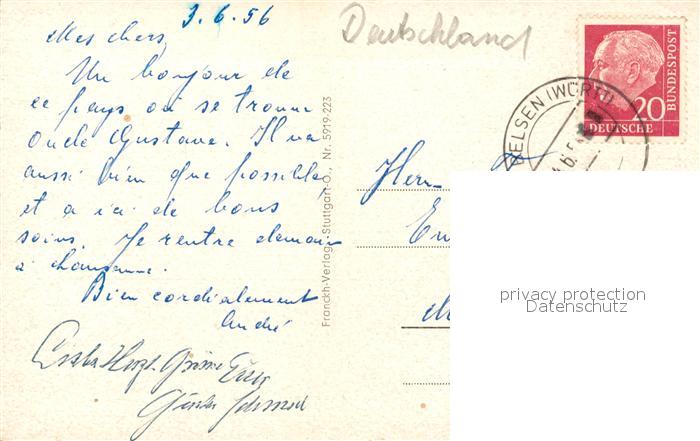 3.6.56
Mes chers,
Un bonjour de
ce pays où se trouve
oncle Gustave. Il va
aussi bien que possible,
et a ici de bons
soins. Je rentre demain
à Lausanne.
Bien cordialement
André
Herzl. Grüsse
Franckh-Verlag, Stuttgart-O., Nr. 5919-223
Deutschland
20
DEUTSCHE
BUNDESPOST
ELSEN (WÜRTT)
Herrn
privacy protection
Datenschutz